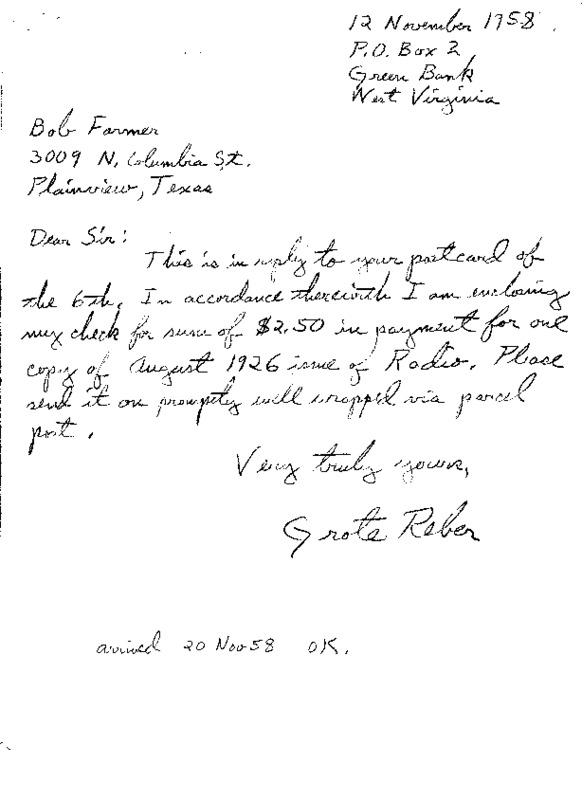 12 November 1958.
P.O. Box 2
Green Bank
West Virginia
Bob Farmer
3009 N. Columbia St.
Plainview, Texas
Dear Sir:
This is in reply to your postcard of
the 6th. In accordance therewith I am enclosing
my check for sum of $2.50 in payment for one
copy of August 1926 issue of Radio. Please
send it on promptly well wrapped via parcel
post.
Very truly yours,
Grote Reber
arrived 20 Nov 58 OK.